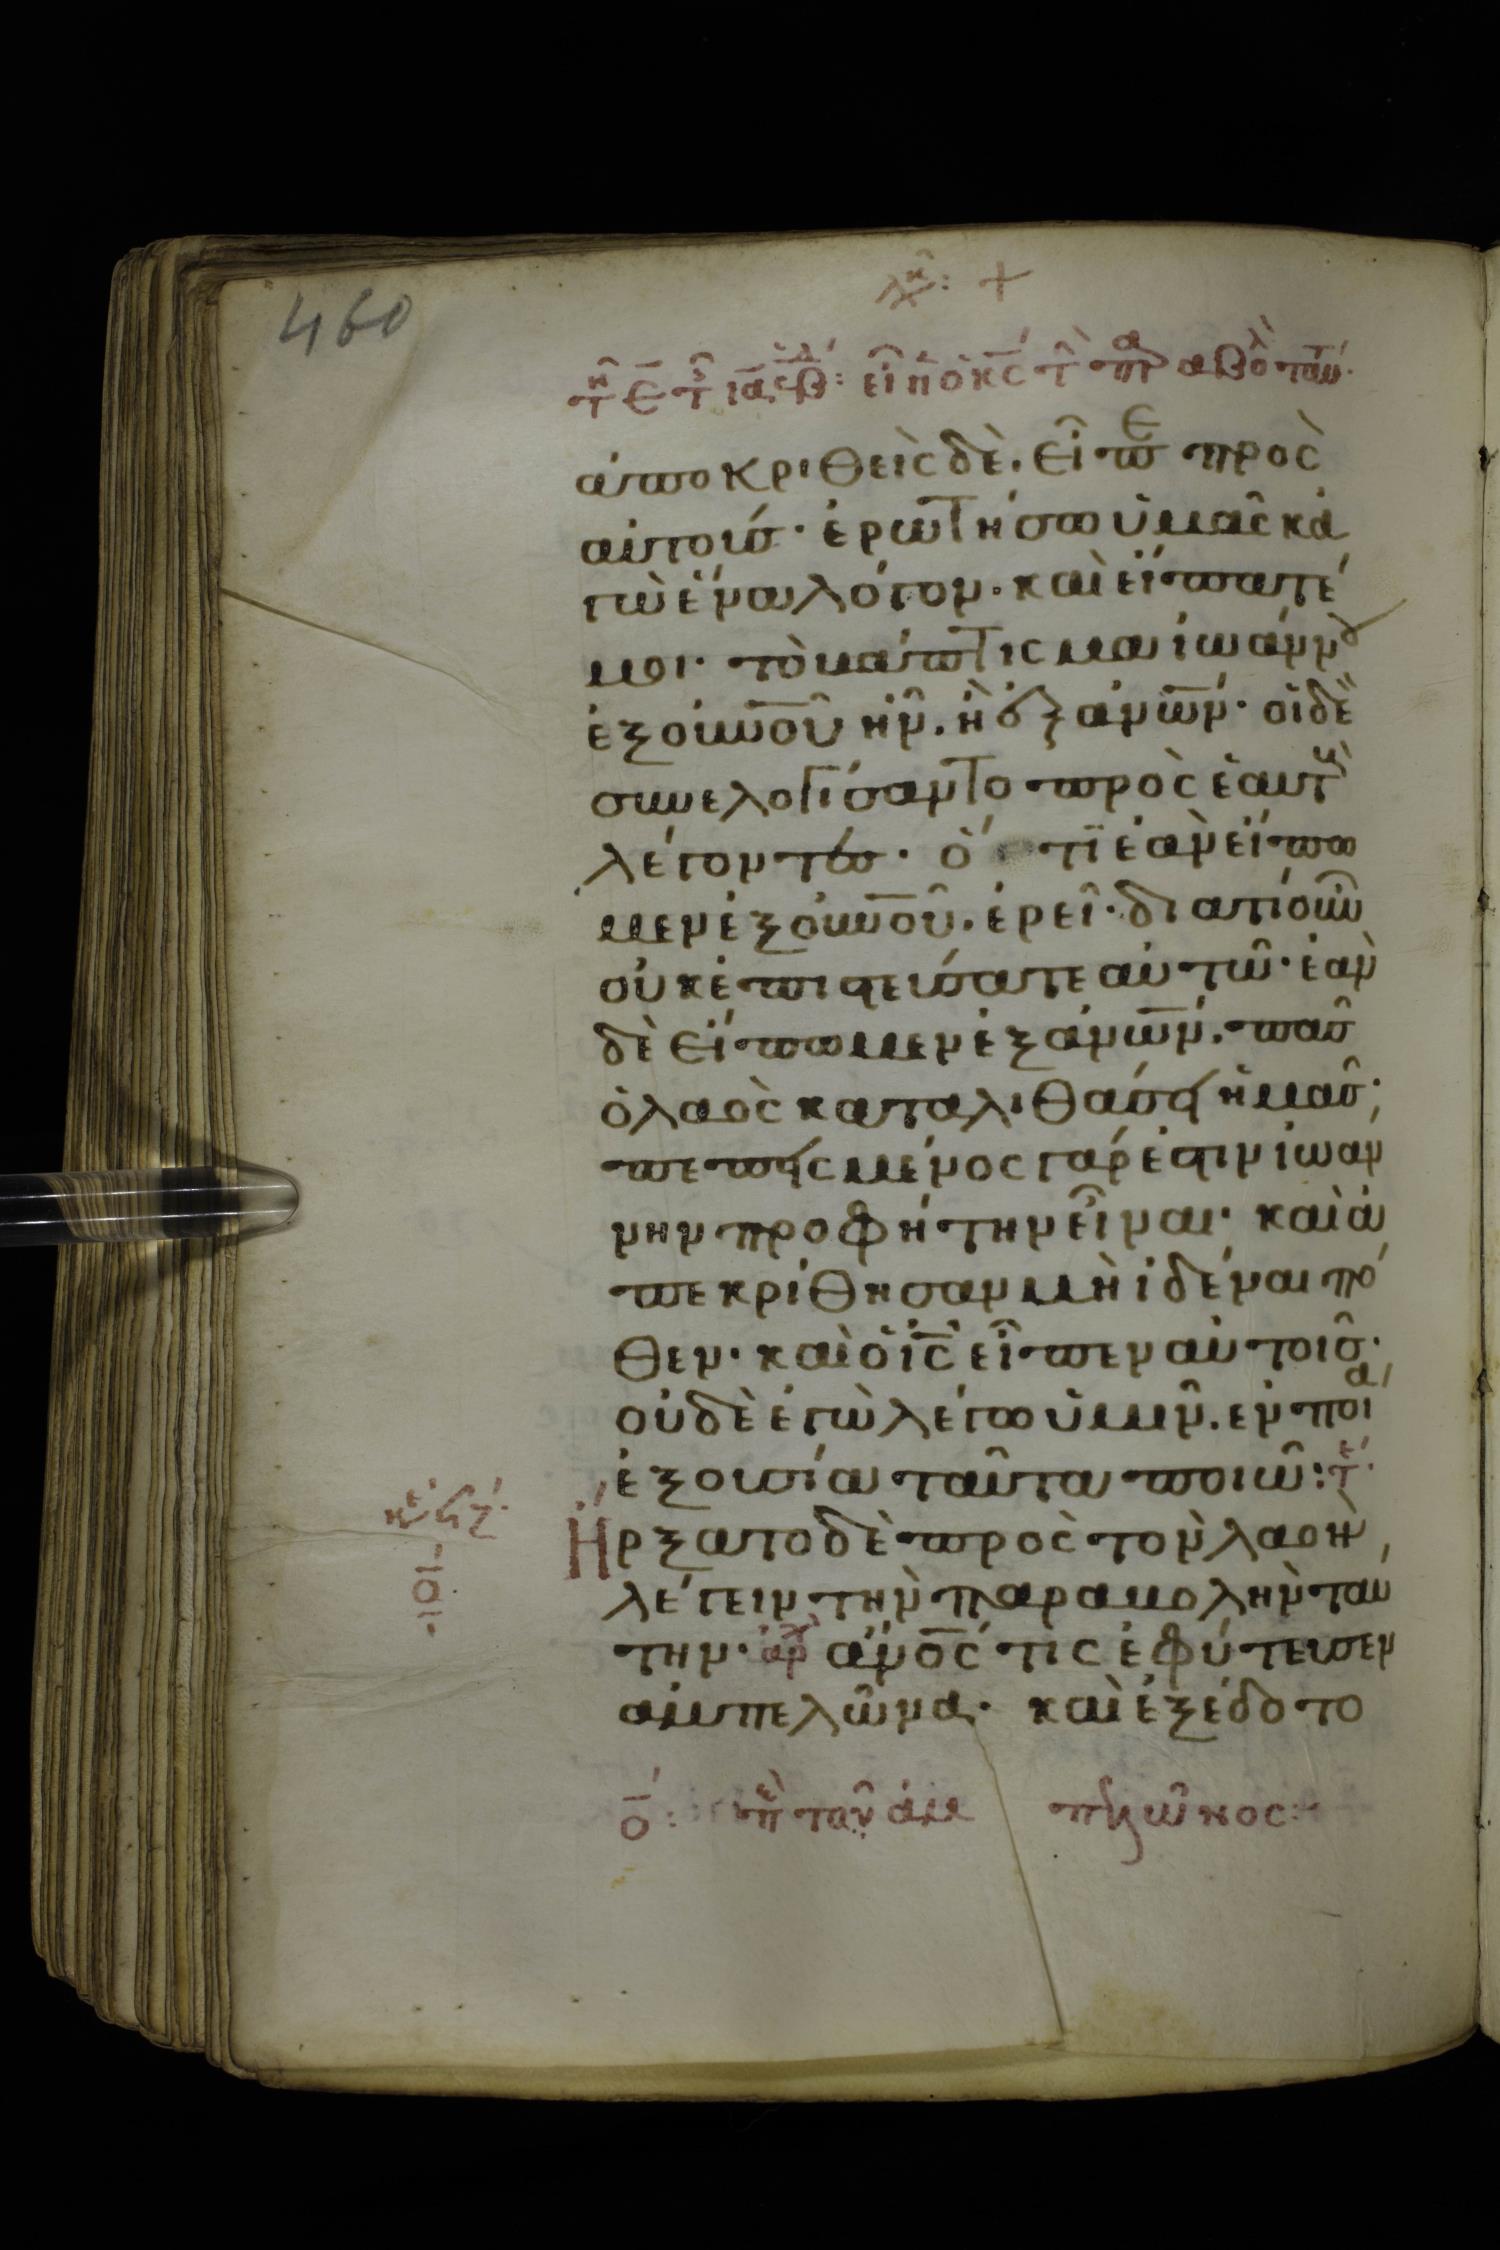 460
τῇ ε τ ιας εβ: εἶπ ὁ κς τ παραβολ ταυτ
ἀποκριθεὶς δὲ. εἶπε πρὸς
αὐτούς· ἐρωτήσω ὑμᾶς κἀ
γὼ ἕνα λόγον. καὶ εἴπατέ
μοι· τὸ βάπτισμα ἰωάνν
ἐξ οὐνοῦ ἦν. ἢ ἐξ ἀνῶν· οἱ δὲ
συνελογίσαντο πρὸς ἑαυτ
λέγοντες· ὅτι ἐὰν εἴπω
μεν ἐξ οὐνοῦ. ἐρεῖ· διατί οὖν
οὐκ ἐπιστεύσατε αὐτῶ· ἐὰν
δὲ εἴπωμεν ἐξ ἀνῶν. πᾶς
ὁ λαὸς καταλιθάσει ἡμᾶς·
πεπεισμένος γάρ ἐστιν ἰωάν
νην προφήτην εἶναι· καὶ ἀ
πεκρίθησαν μὴ ἰδέναι πό
θεν· καὶ ὁ ις εἶπεν αὐτοῖς·
οὐδὲ ἐγὼ λέγω ὑμῖν. ἐν ποία
ἐξουσία ταῦτα ποιῶ: τε
Ἤρξατο δὲ πρὸς τὸν λαὸν
λέγειν τὴν παραβολὴν ταύ
την· ἀρχ ἄνος τις ἐφύτευσεν
ἀμπελῶνα· καὶ ἐξέδοτο
ο: πε τοῦ ἀμπελῶνος: